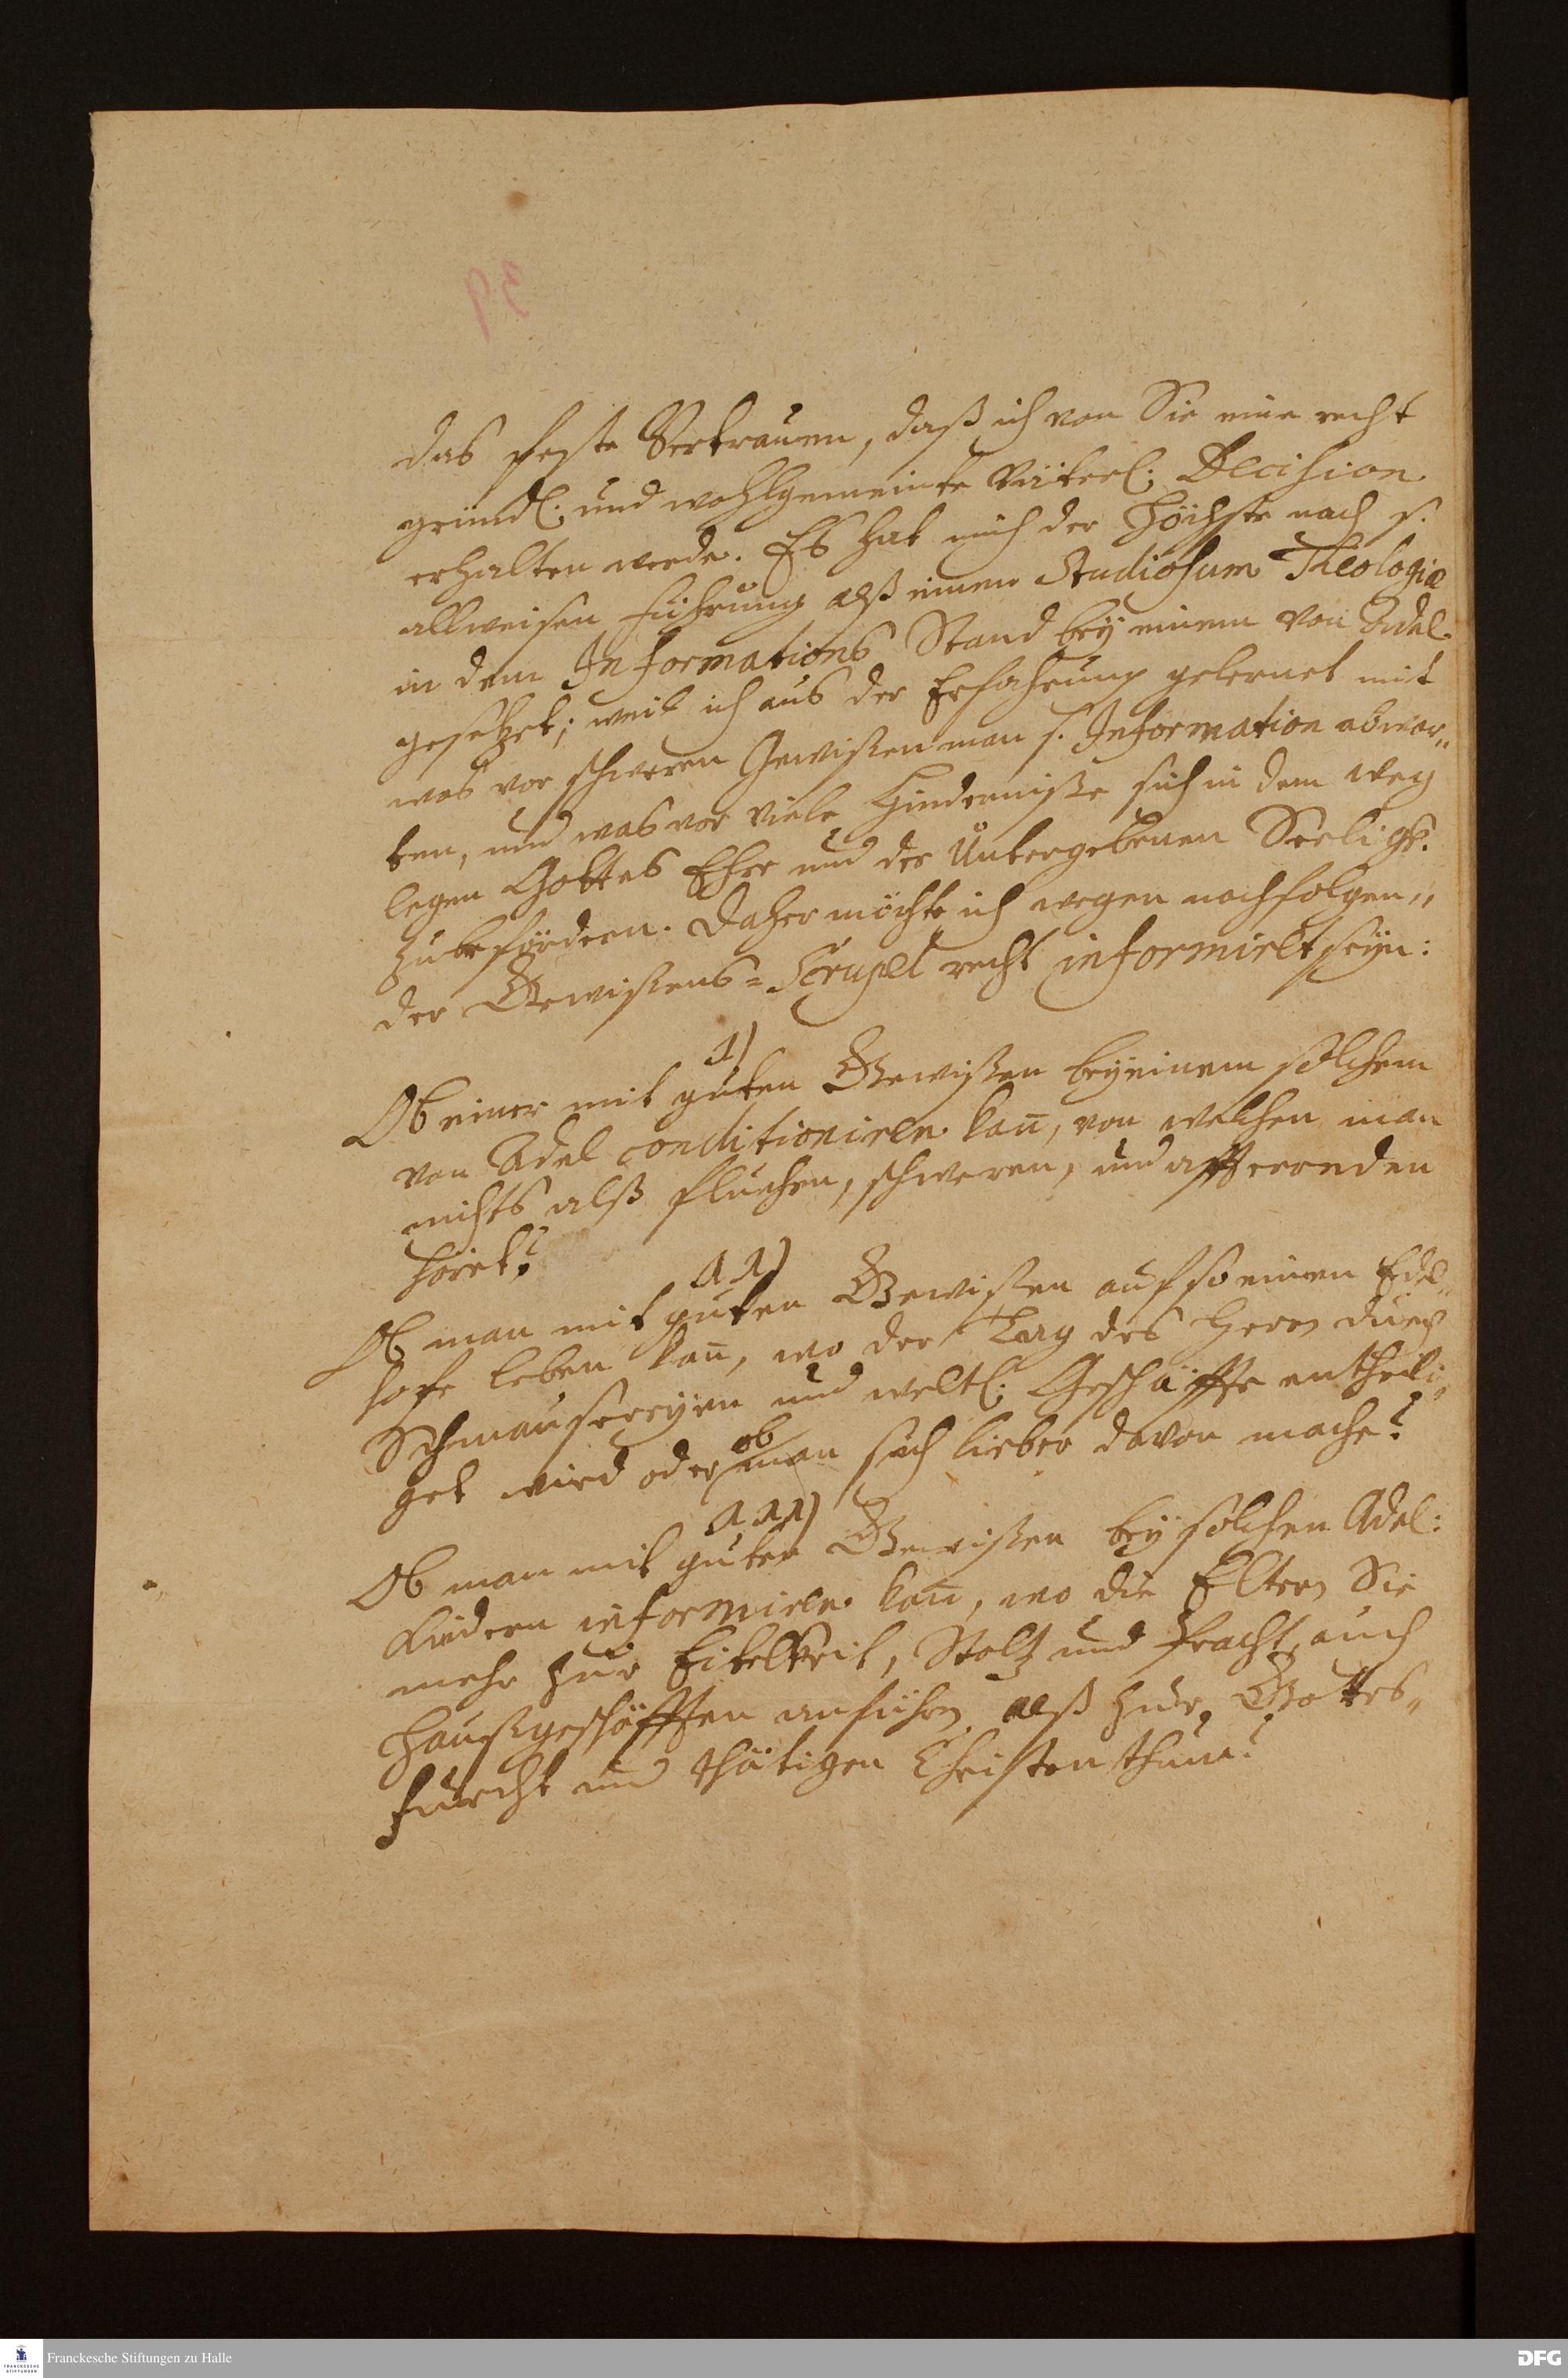 das feste Vertrauen, daß ich von Sie eine recht
gründl. und wohlgemeinte Väterl. Decision
erhalten werde. Es hat mich der Höchste nach s.
allweisen Führung alß einen Studiosum Theologiæ
in dem Informations Stand bey einem von Adel
gesetzet; weil ich aus der Erfahrung gelernet mit
was vor schweren Gewißen man s. Information abwar„
ten, und was vor viele Hinderniße sich in dem Weg
legen Gottes Ehre und der Untergebenen Seeligk.
zubefördern. Daher möchte ich wegen nachfolgen„
der Gewißens-Scrupel recht informiret seyn:
1)
Ob einer mit guten Gewißen bey einem solchem
von Adel conditioniren kan̄, von welchen man
nichts alß fluchen, schweren, und affterreden
höret?
11)
Ob man mit guten Gewißen auf so einen Edel„
hofe leben kan̄, wo der Tag des Herrn durch
Schmausereyen und weltl. Geschäffte entheili„
get wird oder ob man sich lieber davon mache?
111)
Ob man mit guten Gewißen bey solchen Adel:
Kindern informiren kan̄, wo die Eltern Sie
mehr zur Eitelkeit, Stoltz und Pracht, auch
Haußgeschäfften anführen alß zur Gottes„
furcht und thätigen Christenthum?
Franckesche Stiftungen zu Halle
FRANCKESCHE
STIFTUNGEN
DFG